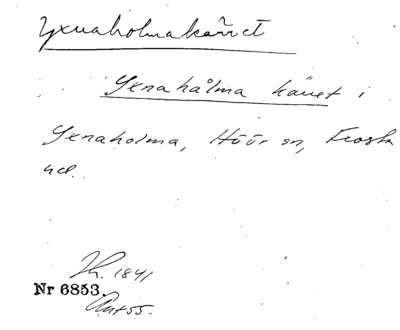 Yxnaholmakärret
Yxnahålma käret i
Yxnaholma, Höör sn, Frosta
hd.
Th. 1841
Nr 6853.
Ant 55.